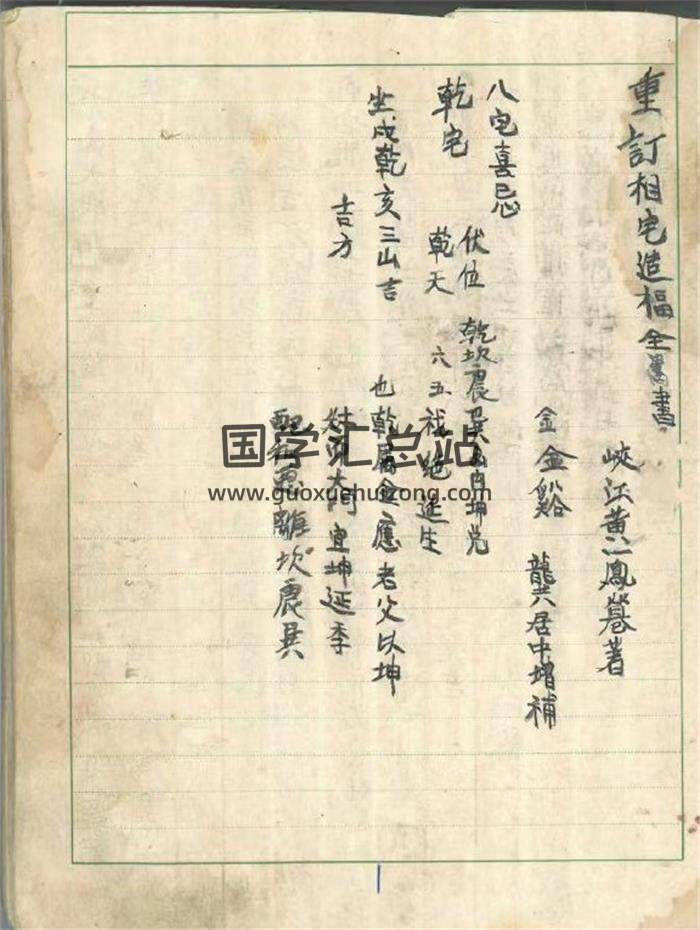 重訂相宅造福全書
峽江黃一鳳菴著
金 金谿 龔居中增補
八宅喜忌
伏位 乾坎震巽 坤兌
乾宅 乾天 六五 延生
坐戌乾亥三山吉 也乾屬金應老父以坤
吉方 宜坤延季
離坎震巽
国学汇总站
www.guoxuehuizong.com
1